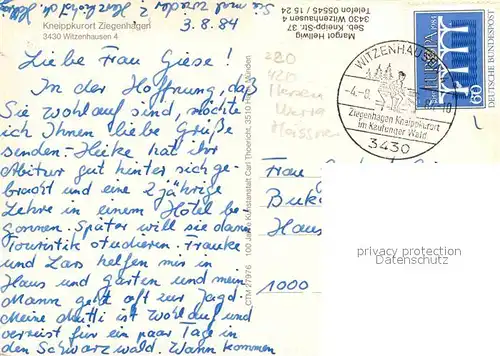 Kneippkurort Ziegenhagen
3430 Witzenhausen 4
3.8.84
Liebe Frau Giese!
In der Hoffnung, daß
Sie wohl auf sind, möchte
ich Ihnen liebe Grüße
senden. Heike hat ihr
Abitur gut hinter sich ge-
bracht und eine 2 jährige
Lehre in einem Hotel be-
gonnen. Später will sie dann
Touristik studieren. Frauke
und Lars helfen mir in
Haus und Garten und mein
Mann geht oft zur Jagd.
Meine Mutti ist wohl auf und
verreist für ein paar Tage in
den Schwarzwald. Wann kommen
Sie mal wieder
Margot Hellwig
Seb. Kneipp-Str. 37
3430 Witzenhausen 4
Telefon 05545 / 15 24
100 Jahre Kunstanstalt Carl Thoericht, 3510 Hann. Münden
CTM 27976
280
420
Hessen
Werra
Meissner
WITZENHAUSEN
-4.-8.
Ziegenhagen Kneippkurort
im Kaufunger Wald
3430
EUROPA
60
DEUTSCHE BUNDESPOST
Frau
Haus
1000
privacy protection
DATENSCHUTZ